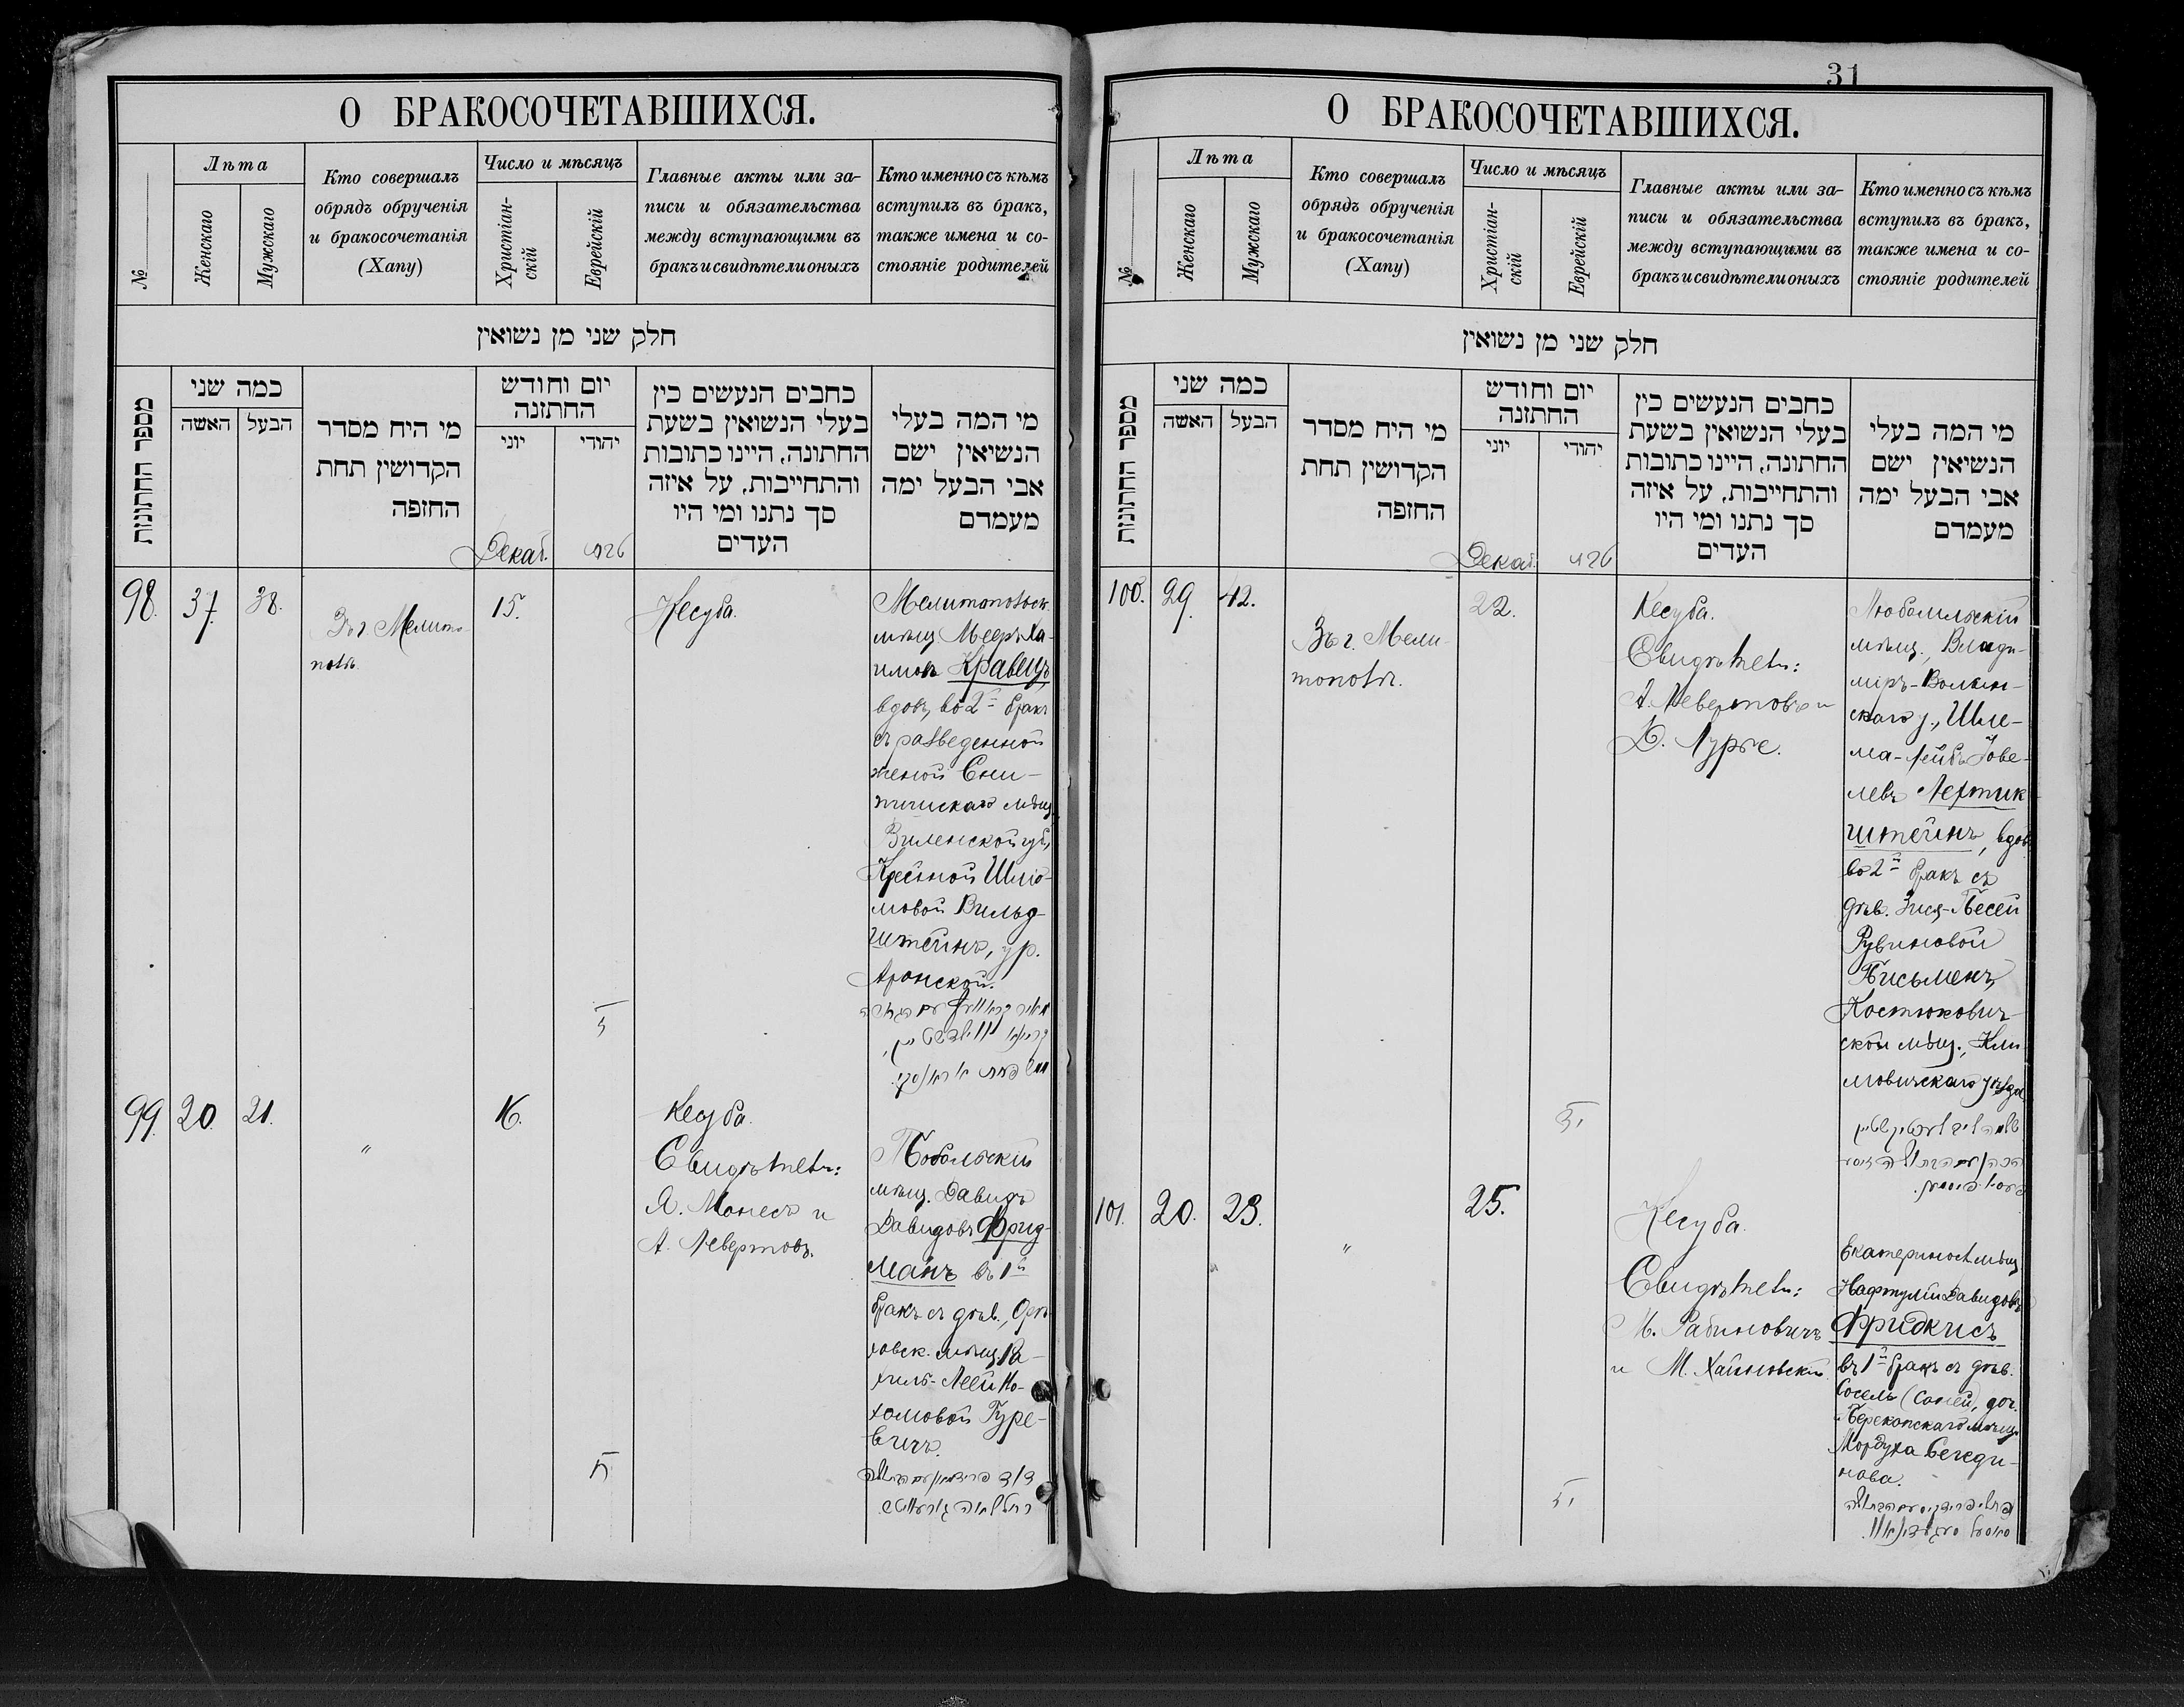 О БРАКОСОЧЕТАВШИХСЯ.
№
Лѣта
Женскаго
Мужскаго
Кто совершалъ
обрядъ обрученія
и бракосочетанія
(Хапу)
Число и мѣсяцъ
Христіан-
скій
Еврейскій
Главные акты или за-
писи и обязательства
между вступающими въ
бракъ и свидѣтели оныхъ
Кто именно съ кѣмъ
вступилъ въ бракъ,
также имена и со-
стояніе родителей
חלק שני מן נשואין
מספר החתונות
כמה שני
האשה
הבעל
מי היח מסדר
הקדושין תחת
החופה
יום וחודש
החתונה
יוני
יהודי
Декаб.
כתבים הנעשים בין
בעלי הנשואין בשעת
החתונה, היינו כתובות
והתחייבות, על איזה
סך נתנו ומי היו
העדים
מי המה בעלי
הנשיאין ישם
אבי הבעל ימה
מעמדם
98.
37.
38.
Въ г. Мелито-
полѣ.
15.
Кесуба.
Мелитопольск.
мѣщ. Мееръ Ха-
имовъ Кравецъ,
вдов., во 2й бракъ
съ разведенной
женой
Виленской губ.,
Крейной Шлiо-
мовой Вильд-
штейнъ, ур.
Аронской.
99.
20.
21.
"
16.
Кесуба.
Свидѣтели:
Я. Монесъ и
А. Левертовъ.
мѣщ. Давидъ
Давидовъ Фрид-
манъ въ 1й
бракъ съ дѣв., Орѣ-
ховск. мѣщ. Ра-
хиль-Леей Но-
хомовой Гуре-
вичъ.
31
О БРАКОСОЧЕТАВШИХСЯ.
№
Лѣта
Женскаго
Мужскаго
Кто совершалъ
обрядъ обрученія
и бракосочетанія
(Хапу)
Число и мѣсяцъ
Христіан-
скій
Еврейскій
Главные акты или за-
писи и обязательства
между вступающими въ
бракъ и свидѣтели оныхъ
Кто именно съ кѣмъ
вступилъ въ бракъ,
также имена и со-
стояніе родителей
חלק שני מן נשואין
מספר החתונות
כמה שני
האשה
הבעל
מי היח מסדר
הקדושין תחת
החופה
יום וחודש
החתונה
יוני
יהודי
Декаб.
כתבים הנעשים בין
בעלי הנשואין בשעת
החתונה, היינו כתובות
והתחייבות, על איזה
סך נתנו ומי היו
העדים
מי המה בעלי
הנשיאין ישם
אבי הבעל ימה
מעמדם
100.
29.
42.
Въ г. Мели-
тополѣ.
22.
Кесуба.
Свидѣтели:
А. Левертовъ и
Д. Лурье.
Любомльскій
мѣщ., Влади-
міръ-Волын-
скаго у., Шле-
ма-Лейбъ Іове-
левъ Лехтик-
штейнъ, вдов.
во 2й бракъ съ
дѣв. Зися-Песей
Рувиновой
Письменъ,
Костюкович-
ской мѣщ., Кли-
мовичскаго уѣзда
101.
20.
23.
"
25.
Кесуба.
Свидѣтели:
М. Рабиновичъ
и М. Хайновскій.
Екатериносл. мѣщ.
Нафтулій Давидовъ
Фридкисъ
въ 1й бракъ съ дѣв.
Сосель (Соней), доч.
Перекопскаго мѣщ.
Мордуха Бегеди-
нова.